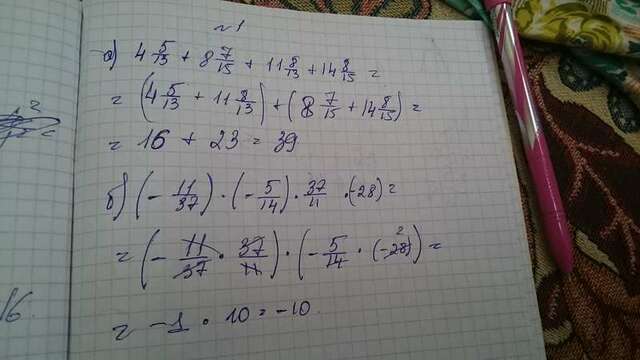 №1
а) 4 5/13 + 8 7/15 + 11 8/13 + 14 8/15 =
= (4 5/13 + 11 8/13) + (8 7/15 + 14 8/15) =
= 16 + 23 = 39
б) (- 11/37) · (- 5/14) · 37/11 · (-28) =
= (- 11/37 · 37/11) · (- 5/14 · (-28) 2) =
= -1 · 10 = -10.
16.